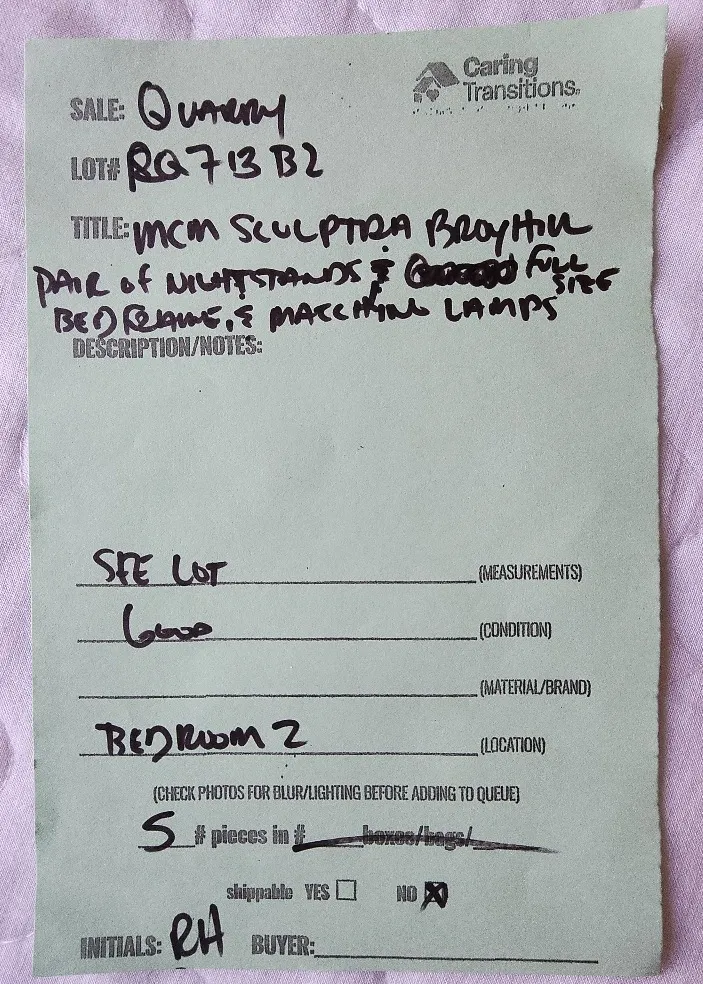 Caring
Transitions.
SALE: QUARRY
LOT# RQ713B2
TITLE: MCM SCULPTRA BROYHILL
PAIR OF NIGHTSTANDS & FULL SIZE
BED FRAME, & MATCHING LAMPS
DESCRIPTION/NOTES:
SEE LOT (MEASUREMENTS)
GOOD (CONDITION)
(MATERIAL/BRAND)
BEDROOM 2 (LOCATION)
(CHECK PHOTOS FOR BLUR/LIGHTING BEFORE ADDING TO QUEUE)
5 # pieces in # boxes/bags/
shippable YES NO X
INITIALS: RH BUYER: